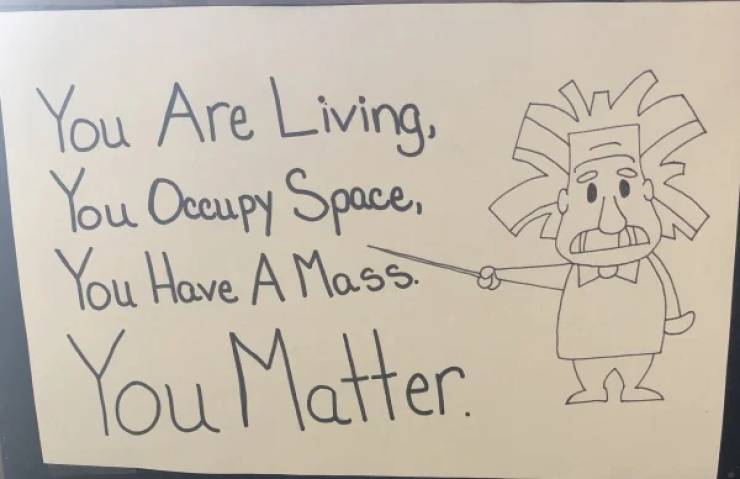 You Are Living,
You Occupy Space,
You Have A Mass.
You Matter.